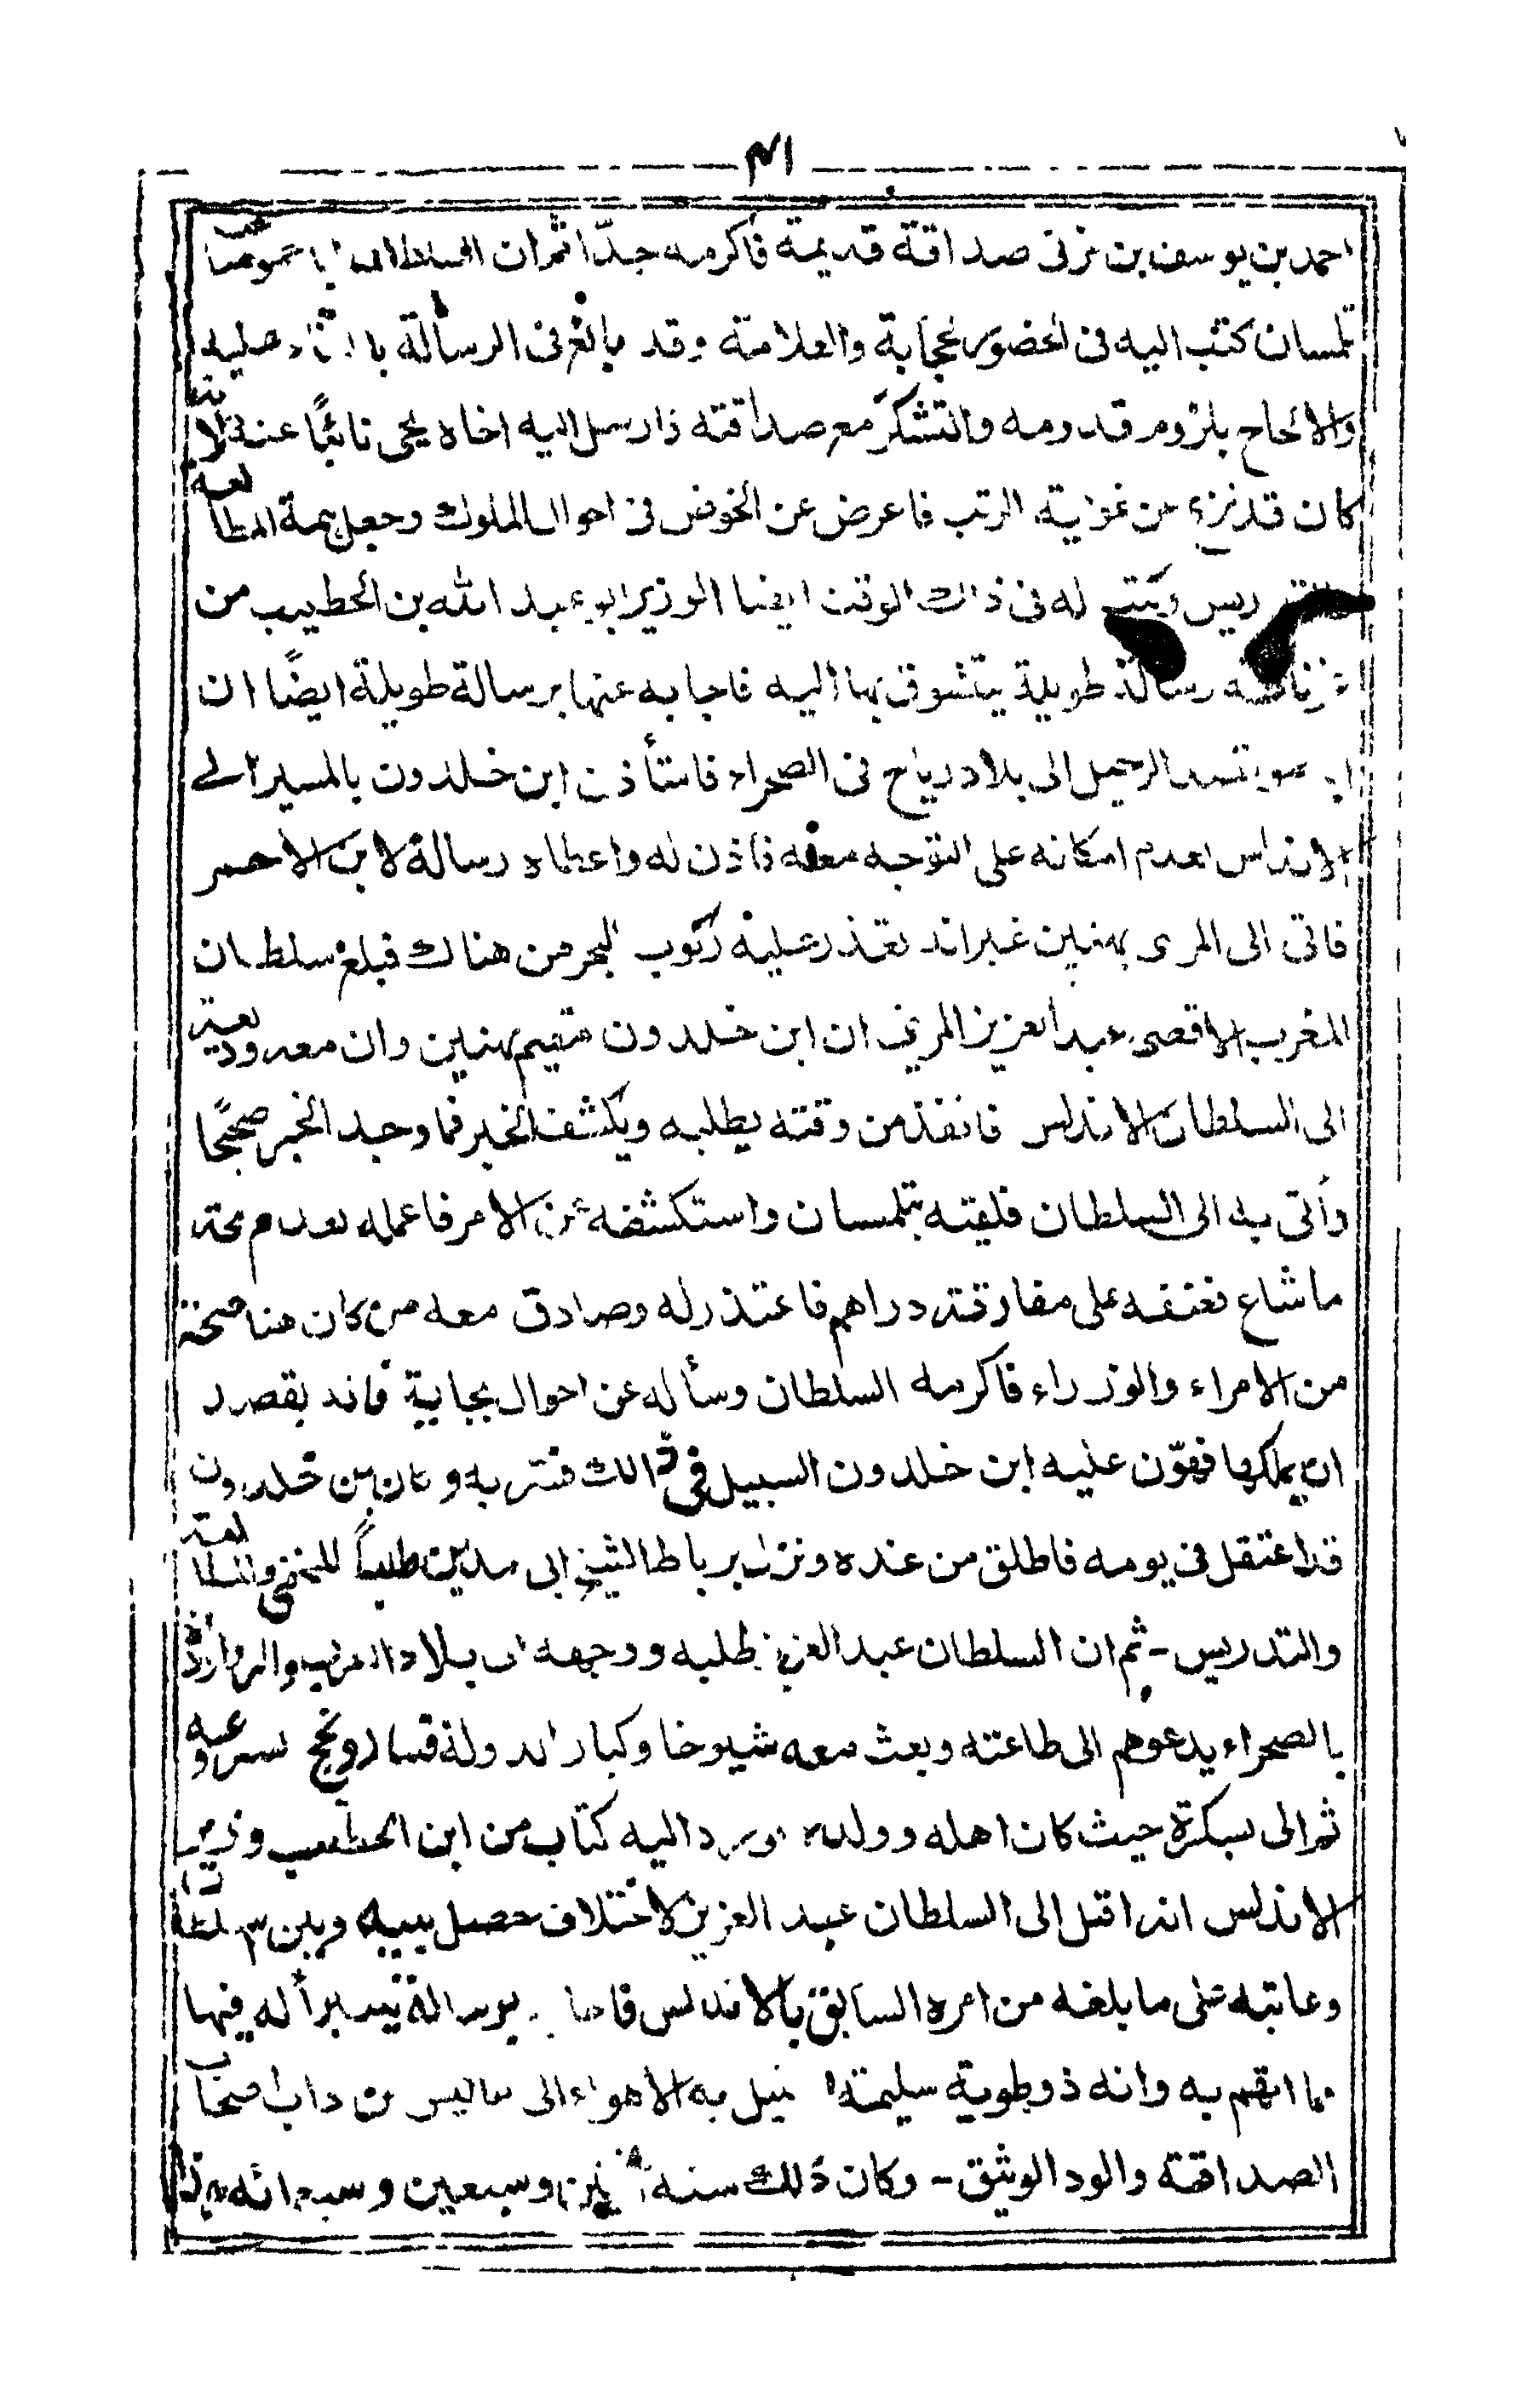 احمد بن يوسف بن مزنى صداقة قديمة فأكرمه جدّا ثم ان السلطان ابا حمو صاحب
تلمسان كتب اليه فى الحضور لحجابة والعلامة وقد بالغ فى الرسالة بالثناء عليه
والالحاح بلزوم قدومه والتشكر مع صداقته فارسل اليه اخاه يحيى نائبًا عنه لانه
كان قد نزع عن غواية الرتب فاعرض عن الخوض فى احوال الملوك وجعل همة المطالعة
والتدريس وكتب له فى ذلك الوقت ايضا الوزير ابو عبد الله بن الخطيب من
غرناطة رسالة طويلة يتشوق بها اليه فاجابه عنها برسالة طويلة ايضًا ان
الرحيل الى بلاد رياح فى الصحراء فاستأذن ابن خلدون بالمسير الى
الاندلس لعدم امكانه على التوجه معه فاذن له واعطاه رسالة لابن الاحمر
فاتى الى المرسى بهنين غير انه تعذر عليه ركوب البحر من هناك فبلغ سلطان
المغرب الاقصى عبد العزيز المرينى ان ابن خلدون مقيم بهنين وان معه وديعة
الى السلطان الاندلس فانفذ من وقته يطلبه ويكشف الخبر فما وجد الخبر صحيحًا
وأتى به الى السلطان فلقيته بتلمسان واستكشفه عن الامر فاعمله بعدم صحته
ما شاع فعنفه على مفارقته دراهم فاعتذر له وصادق معه من كان هنا
من الامراء والوزراء فاكرمه السلطان وسأله عن احوال بجاية فانه بقصد
ان يملكها فهوّن عليه ابن خلدون السبيل فى ذالك فسر به وكان ابن خلدون
قد اعتقل فى يومه فاطلق من عنده ونزل برباط الشيخ ابى مدين طلبًا للتخفى والمطالعة
والتدريس - ثم ان السلطان عبد العزيز طلبه ووجهه الى بلاد العرب
بالصحراء يدعوهم الى طاعته وبعث معه شيوخا وكبار الدولة فسار ونجح
ثم الى بسكرة حيث كان اهله وولده وورد اليه كتاب من ابن الخطيب وزير
الاندلس انه اقبل الى السلطان عبد العزيز لاختلاف حصل بينه وبين سلطانه
وعاتبه على ما بلغه من امره السابق بالاندلس فاجابه برسالة يتبرأ له فيها
مما اتهم به وانه ذو طوية سليمة لا تميل به الاهواء الى ما ليس من داب اصحاب
الصداقة والود الوثيق - وكان ذلك سنة اثنين وسبعين وسبعمائه